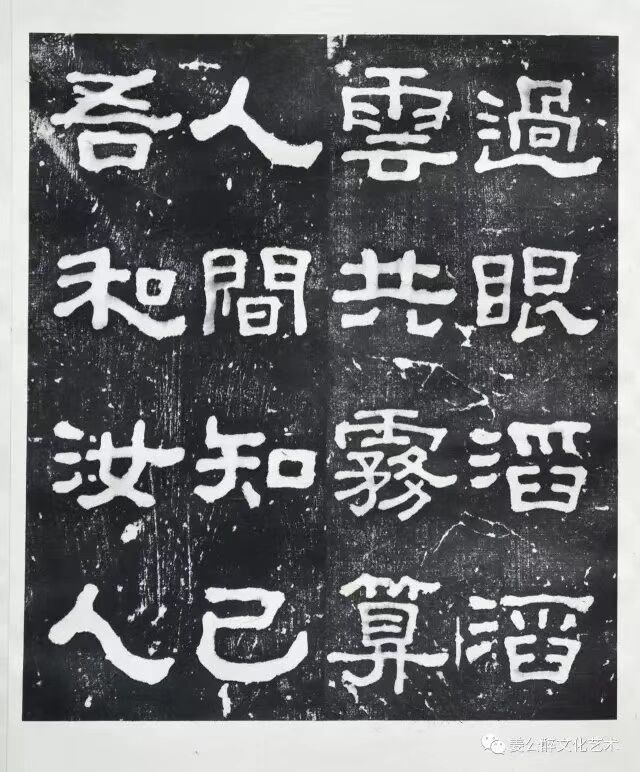 過眼滔滔
雲共霧算
人間知己
吾和汝人
姜公醉文化艺术